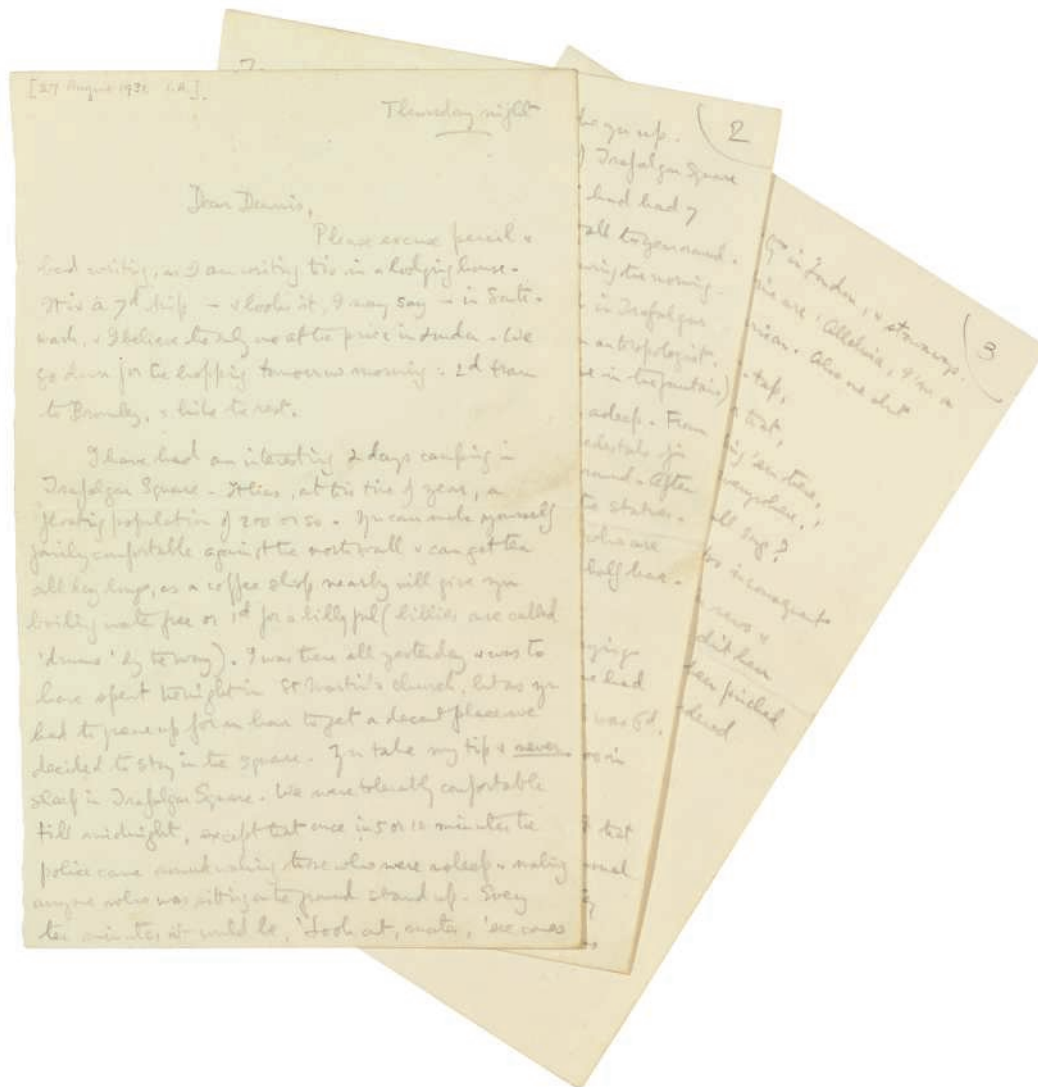 [27 August 1931 I.A.]
Thursday night
Dear Dennis,
Please excuse pencil &
bad writing, as I am writing this in a lodging house.
It is a 7d kip – & looks it, I may say – in South-
wark, & I believe the only one at the price in London. We
go down for the hopping tomorrow morning: 2d tram
to Bromley, & hike the rest.
I have had an interesting 2 days camping in
Trafalgar Square. It has, at this time of year, a
floating population of 200 or so. You can make yourself
fairly comfortable against the north wall & can get tea
all day long, as a coffee shop nearby will give you
boiling water free or 1d for a billy full (billies are called
'drums' by the way). I was there all yesterday & was to
have spent the night in St Martin's church, but as you
had to queue up for an hour to get a decent place we
decided to stay in the square. You take my tip & never
sleep in Trafalgar Square. We were tolerably comfortable
till midnight, except that once in 5 or 10 minutes the
police came round waking those who were asleep & making
anyone who was sitting on the ground stand up. Every
ten minutes it would be, 'Look out, mates, 'ere comes
2
you up.
Trafalgar Square
had had 7
all together round.
during the morning.
in Trafalgar
an anthropologist.
in the fountain)
asleep. From
pedestals for
round. After
the statues.
who are
half hour.
had
was 6d.
that
3
in London, is stowaways.
are, Alleluia, I'm a
Also one about
tap,
that,
everywhere.
say?
too incongruous
news &
didn't hear
been pinched